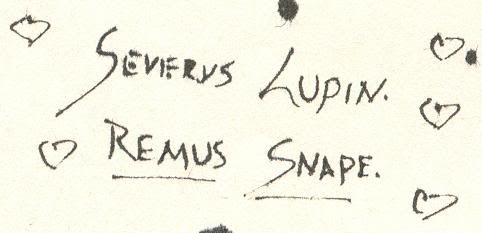 Severus Lupin.
Remus Snape.